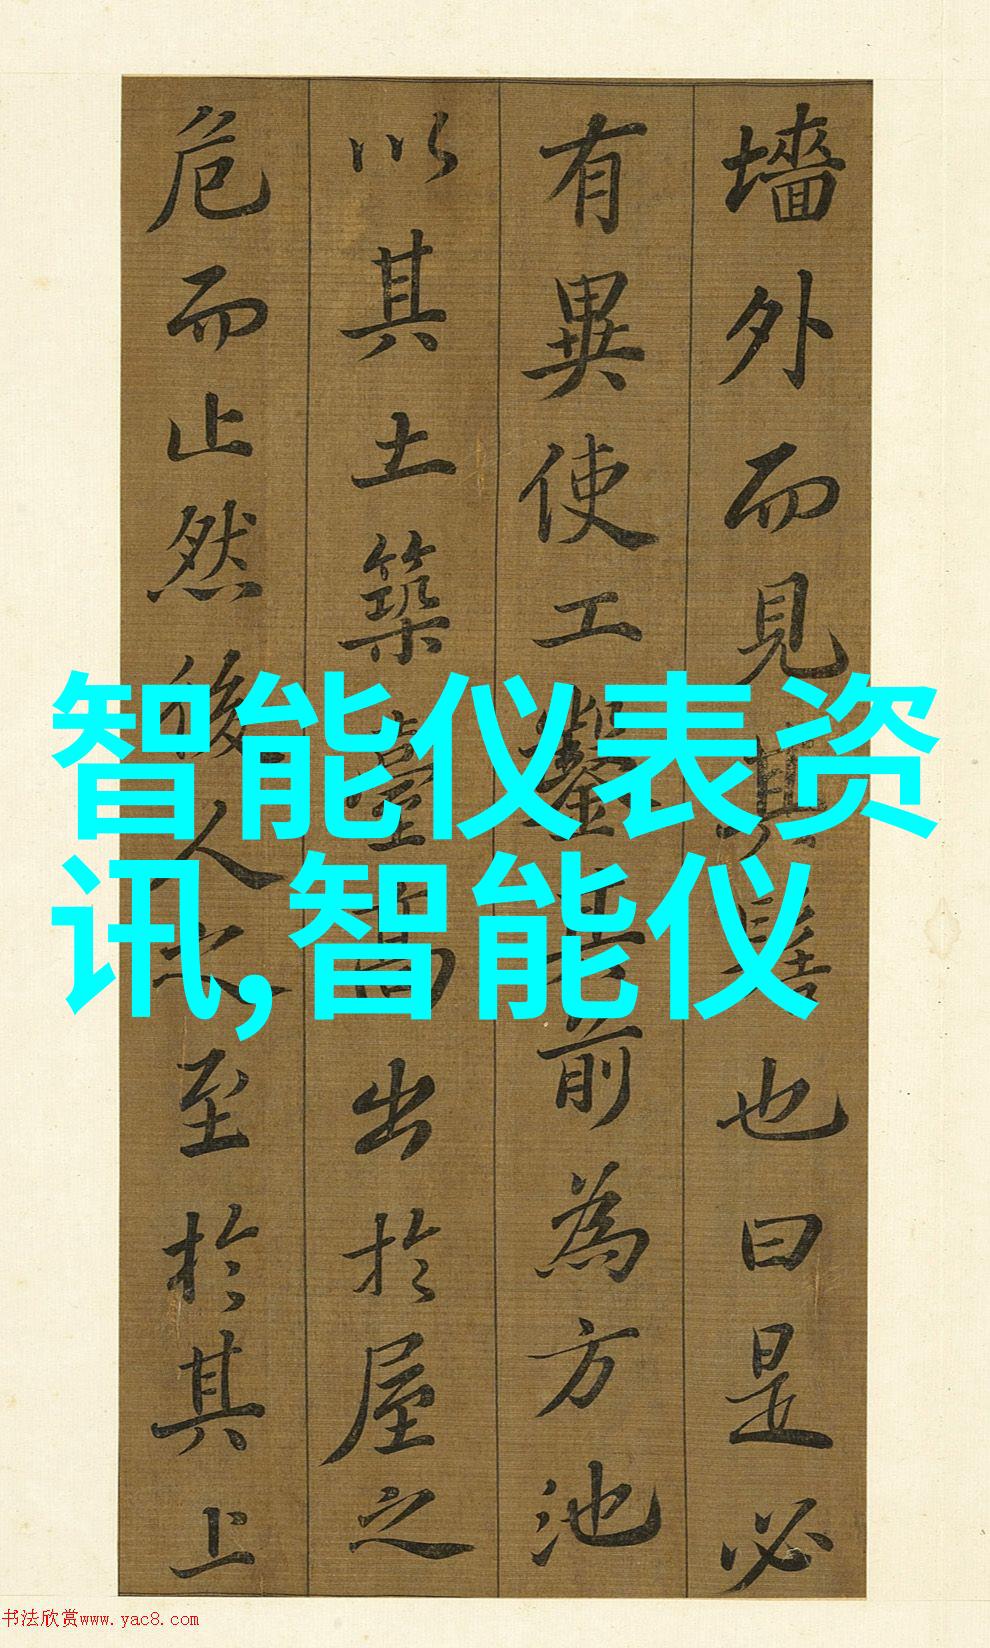 墻外而見其髻也曰是必
有異使工鑿其前為方池
以其土築臺高出於屋之
危而止然後人之至於其上
智能仪表资
讯,智能仪
书法欣赏www.yac8.com